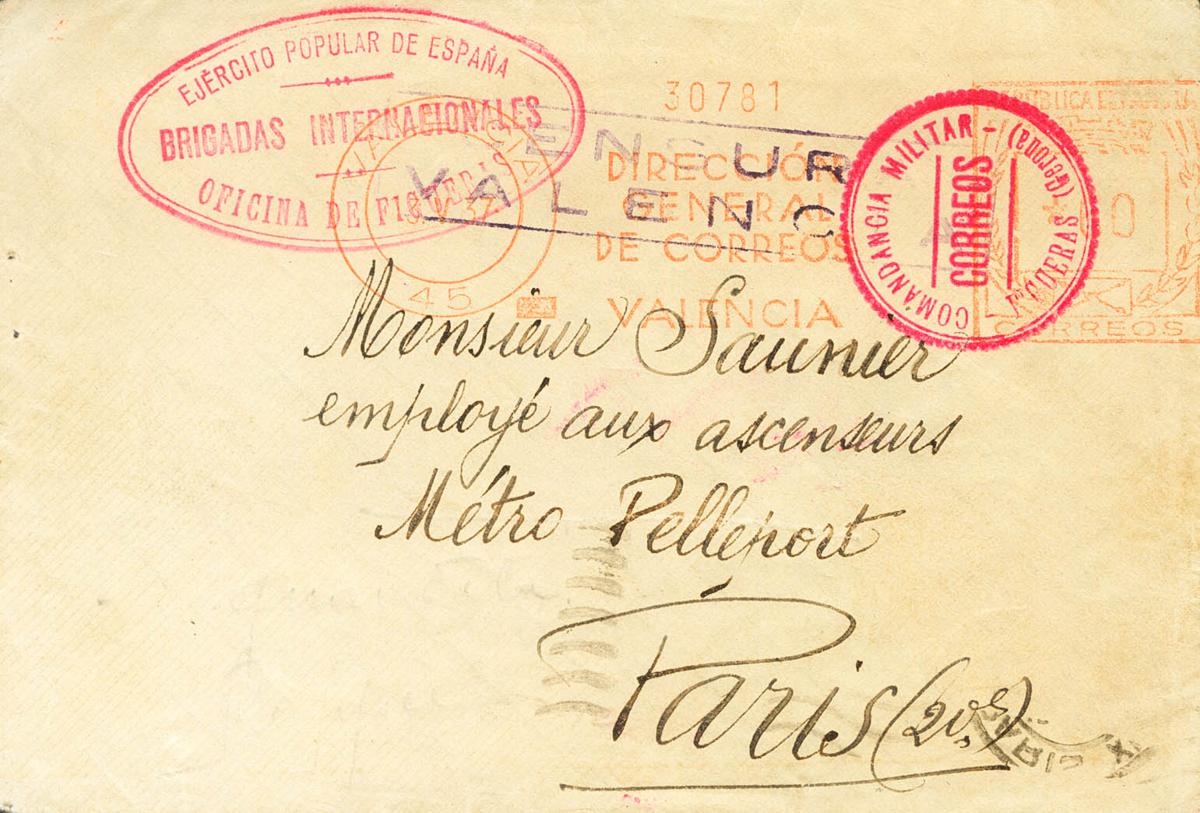 EJÉRCITO POPULAR DE ESPAÑA
BRIGADAS INTERNACIONALES
OFICINA DE
30781
DIRECCIÓN
GENERAL
DE CORREOS
VALENCIA
45
CORREOS
COMANDANCIA MILITAR -
CORREOS
(Gerona)
Monsieur Saunier
employé aux ascenseurs
Métro Pelleport
Paris (20e)